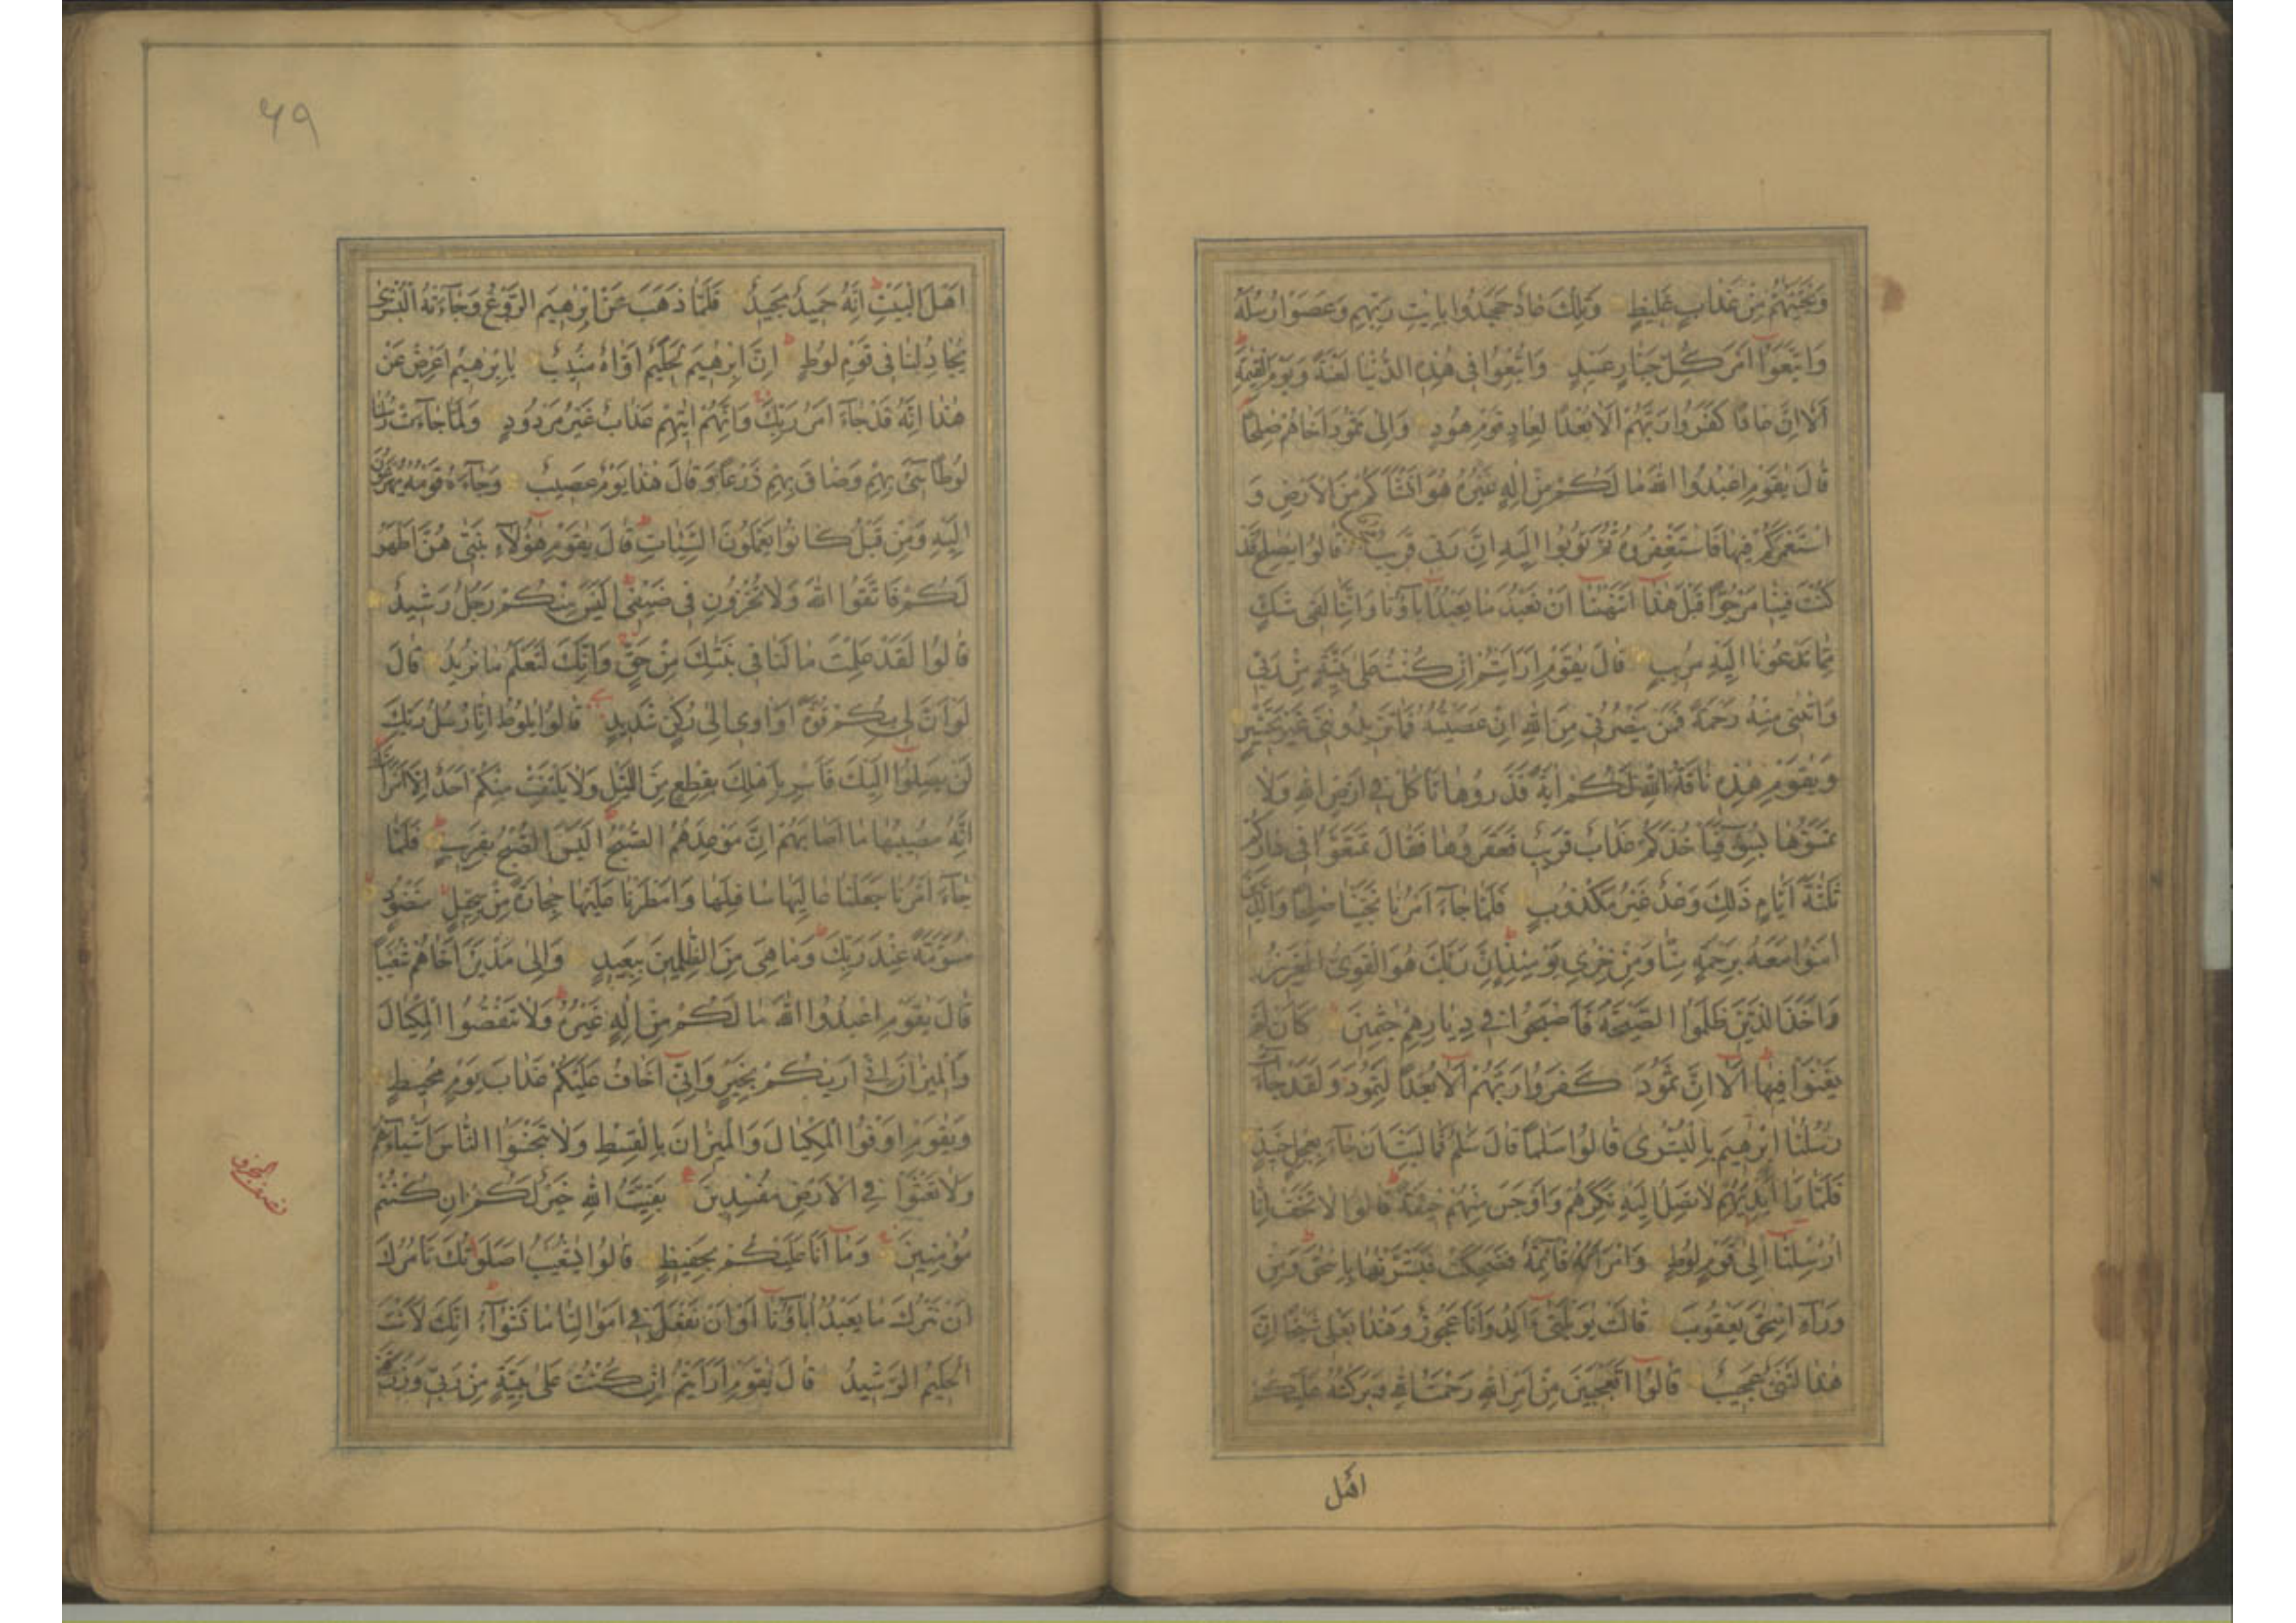 وَنَجَّيْنٰهُمْ مِنْ عَذَابٍ غَلِيظٍ وَتِلْكَ عَادٌ جَحَدُوا بِاٰيٰتِ رَبِّهِمْ وَعَصَوْا رُسُلَهُ
وَاتَّبَعُوٓا اَمْرَ كُلِّ جَبَّارٍ عَنِيدٍ وَاُتْبِعُوا فِي هٰذِهِ الدُّنْيَا لَعْنَةً وَيَوْمَ الْقِيٰمَةِ
اَلَآ اِنَّ عَادًا كَفَرُوا رَبَّهُمْ اَلَا بُعْدًا لِعَادٍ قَوْمِ هُودٍ وَاِلٰى ثَمُودَ اَخَاهُمْ صٰلِحًا
قَالَ يٰقَوْمِ اعْبُدُوا اللّٰهَ مَا لَكُمْ مِنْ اِلٰهٍ غَيْرُهُ هُوَ اَنْشَاَكُمْ مِنَ الْاَرْضِ وَ
اسْتَعْمَرَكُمْ فِيهَا فَاسْتَغْفِرُوهُ ثُمَّ تُوبُوا اِلَيْهِ اِنَّ رَبِّي قَرِيبٌ قَالُوا يٰصٰلِحُ قَدْ
كُنْتَ فِينَا مَرْجُوًّا قَبْلَ هٰذَا اَتَنْهٰنَا اَنْ نَعْبُدَ مَا يَعْبُدُ اٰبَآؤُنَا وَاِنَّنَا لَفِي شَكٍّ
مِمَّا تَدْعُونَا اِلَيْهِ مُرِيبٍ قَالَ يٰقَوْمِ اَرَاَيْتُمْ اِنْ كُنْتُ عَلٰى بَيِّنَةٍ مِنْ رَبِّي
وَاٰتٰنِي مِنْهُ رَحْمَةً فَمَنْ يَنْصُرُنِي مِنَ اللّٰهِ اِنْ عَصَيْتُهُ فَمَا تَزِيدُونَنِي غَيْرَ تَخْسِيرٍ
وَيٰقَوْمِ هٰذِهِ نَاقَةُ اللّٰهِ لَكُمْ اٰيَةً فَذَرُوهَا تَاْكُلْ فِي اَرْضِ اللّٰهِ وَلَا
تَمَسُّوهَا بِسُوٓءٍ فَيَاْخُذَكُمْ عَذَابٌ قَرِيبٌ فَعَقَرُوهَا فَقَالَ تَمَتَّعُوا فِي دَارِكُمْ
ثَلٰثَةَ اَيَّامٍ ذٰلِكَ وَعْدٌ غَيْرُ مَكْذُوبٍ فَلَمَّا جَآءَ اَمْرُنَا نَجَّيْنَا صٰلِحًا وَالَّذِينَ
اٰمَنُوا مَعَهُ بِرَحْمَةٍ مِنَّا وَمِنْ خِزْيِ يَوْمِئِذٍ اِنَّ رَبَّكَ هُوَ الْقَوِيُّ الْعَزِيزُ
وَاَخَذَ الَّذِينَ ظَلَمُوا الصَّيْحَةُ فَاَصْبَحُوا فِي دِيَارِهِمْ جٰثِمِينَ كَاَنْ لَمْ
يَغْنَوْا فِيهَا اَلَآ اِنَّ ثَمُودَ كَفَرُوا رَبَّهُمْ اَلَا بُعْدًا لِثَمُودَ وَلَقَدْ جَآءَتْ
رُسُلُنَا اِبْرٰهِيمَ بِالْبُشْرٰى قَالُوا سَلٰمًا قَالَ سَلٰمٌ فَمَا لَبِثَ اَنْ جَآءَ بِعِجْلٍ حَنِيذٍ
فَلَمَّا رَاٰ اَيْدِيَهُمْ لَا تَصِلُ اِلَيْهِ نَكِرَهُمْ وَاَوْجَسَ مِنْهُمْ خِيفَةً قَالُوا لَا تَخَفْ اِنَّا
اُرْسِلْنَا اِلٰى قَوْمِ لُوطٍ وَامْرَاَتُهُ قَآئِمَةٌ فَضَحِكَتْ فَبَشَّرْنٰهَا بِاِسْحٰقَ وَمِنْ
وَرَآءِ اِسْحٰقَ يَعْقُوبَ قَالَتْ يٰوَيْلَتٰى ءَاَلِدُ وَاَنَا عَجُوزٌ وَهٰذَا بَعْلِي شَيْخًا اِنَّ
هٰذَا لَشَيْءٌ عَجِيبٌ قَالُوا اَتَعْجَبِينَ مِنْ اَمْرِ اللّٰهِ رَحْمَتُ اللّٰهِ وَبَرَكٰتُهُ عَلَيْكُمْ
اهل
٦٩
اَهْلَ الْبَيْتِ اِنَّهُ حَمِيدٌ مَجِيدٌ فَلَمَّا ذَهَبَ عَنْ اِبْرٰهِيمَ الرَّوْعُ وَجَآءَتْهُ الْبُشْرٰى
يُجَادِلُنَا فِي قَوْمِ لُوطٍ اِنَّ اِبْرٰهِيمَ لَحَلِيمٌ اَوَّاهٌ مُنِيبٌ يٰاِبْرٰهِيمُ اَعْرِضْ عَنْ
هٰذَا اِنَّهُ قَدْ جَآءَ اَمْرُ رَبِّكَ وَاِنَّهُمْ اٰتِيهِمْ عَذَابٌ غَيْرُ مَرْدُودٍ وَلَمَّا جَآءَتْ رُسُلُنَا
لُوطًا سِيٓءَ بِهِمْ وَضَاقَ بِهِمْ ذَرْعًا وَقَالَ هٰذَا يَوْمٌ عَصِيبٌ وَجَآءَهُ قَوْمُهُ يُهْرَعُونَ
اِلَيْهِ وَمِنْ قَبْلُ كَانُوا يَعْمَلُونَ السَّيِّئَاتِ قَالَ يٰقَوْمِ هٰٓؤُلَآءِ بَنٰتِي هُنَّ اَطْهَرُ
لَكُمْ فَاتَّقُوا اللّٰهَ وَلَا تُخْزُونِ فِي ضَيْفِي اَلَيْسَ مِنْكُمْ رَجُلٌ رَشِيدٌ
قَالُوا لَقَدْ عَلِمْتَ مَا لَنَا فِي بَنٰتِكَ مِنْ حَقٍّ وَاِنَّكَ لَتَعْلَمُ مَا نُرِيدُ قَالَ
لَوْ اَنَّ لِي بِكُمْ قُوَّةً اَوْ اٰوِي اِلٰى رُكْنٍ شَدِيدٍ قَالُوا يٰلُوطُ اِنَّا رُسُلُ رَبِّكَ
لَنْ يَصِلُوٓا اِلَيْكَ فَاَسْرِ بِاَهْلِكَ بِقِطْعٍ مِنَ اللَّيْلِ وَلَا يَلْتَفِتْ مِنْكُمْ اَحَدٌ اِلَّا امْرَاَتَكَ
اِنَّهُ مُصِيبُهَا مَا اَصَابَهُمْ اِنَّ مَوْعِدَهُمُ الصُّبْحُ اَلَيْسَ الصُّبْحُ بِقَرِيبٍ فَلَمَّا
جَآءَ اَمْرُنَا جَعَلْنَا عَالِيَهَا سَافِلَهَا وَاَمْطَرْنَا عَلَيْهَا حِجَارَةً مِنْ سِجِّيلٍ مَنْضُودٍ
مُسَوَّمَةً عِنْدَ رَبِّكَ وَمَا هِيَ مِنَ الظّٰلِمِينَ بِبَعِيدٍ وَاِلٰى مَدْيَنَ اَخَاهُمْ شُعَيْبًا
قَالَ يٰقَوْمِ اعْبُدُوا اللّٰهَ مَا لَكُمْ مِنْ اِلٰهٍ غَيْرُهُ وَلَا تَنْقُصُوا الْمِكْيَالَ
وَالْمِيزَانَ اِنِّي اَرٰيكُمْ بِخَيْرٍ وَاِنِّي اَخَافُ عَلَيْكُمْ عَذَابَ يَوْمٍ مُحِيطٍ
وَيٰقَوْمِ اَوْفُوا الْمِكْيَالَ وَالْمِيزَانَ بِالْقِسْطِ وَلَا تَبْخَسُوا النَّاسَ اَشْيَآءَهُمْ
وَلَا تَعْثَوْا فِي الْاَرْضِ مُفْسِدِينَ بَقِيَّتُ اللّٰهِ خَيْرٌ لَكُمْ اِنْ كُنْتُمْ
مُؤْمِنِينَ وَمَا اَنَا عَلَيْكُمْ بِحَفِيظٍ قَالُوا يٰشُعَيْبُ اَصَلٰوتُكَ تَاْمُرُكَ
اَنْ نَتْرُكَ مَا يَعْبُدُ اٰبَآؤُنَا اَوْ اَنْ نَفْعَلَ فِي اَمْوَالِنَا مَا نَشٰٓؤُا اِنَّكَ لَاَنْتَ
الْحَلِيمُ الرَّشِيدُ قَالَ يٰقَوْمِ اَرَاَيْتُمْ اِنْ كُنْتُ عَلٰى بَيِّنَةٍ مِنْ رَبِّي وَرَزَقَنِي
نصف الجزو